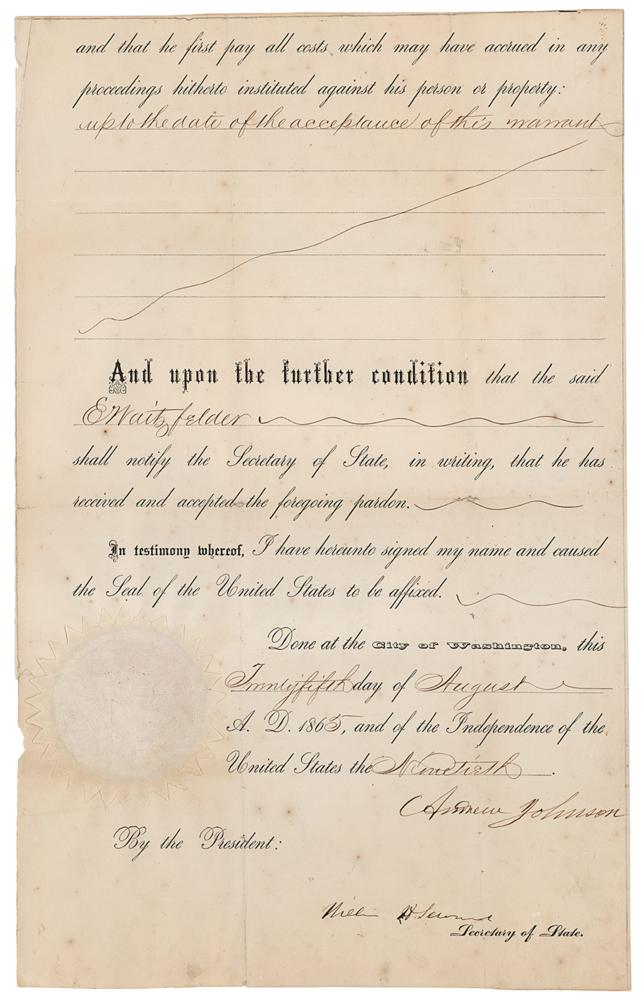 and that he first pay all costs which may have accrued in any
proceedings hitherto instituted against his person or property:
up to the date of the acceptance of this warrant
And upon the further condition that the said
E Waitzfelder
shall notify the Secretary of State, in writing, that he has
received and accepted the foregoing pardon.
In testimony whereof, I have hereunto signed my name and caused
the Seal of the United States to be affixed.
Done at the City of Washington, this
Twenty fifth day of August
A. D. 1865, and of the Independence of the
United States the Ninetieth.
Andrew Johnson
By the President:
William H Seward
Secretary of State.